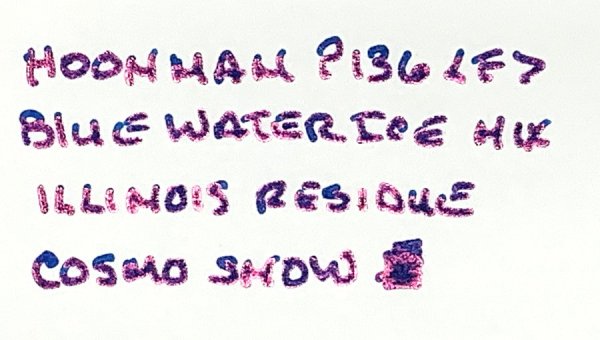 HOONMAN P136 <F>
BLUE WATER ICE HK
ILLINOIS RESIDUE
COSMO SHOW